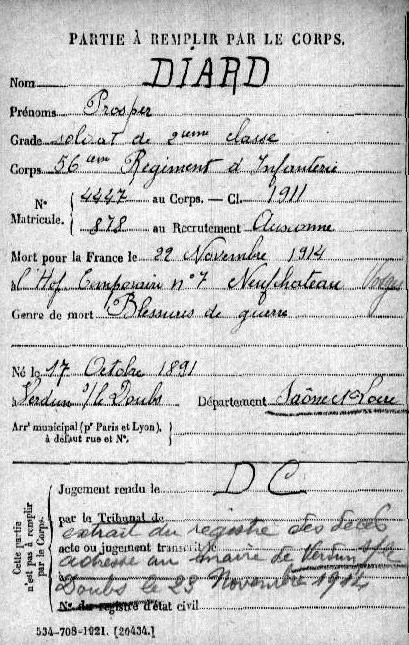 PARTIE À REMPLIR PAR LE CORPS.
Nom DIARD
Prénoms Prosper
Grade soldat de 2ième classe
Corps 56ième Régiment d'Infanterie
N° Matricule. 4447 au Corps. — Cl. 1911
878 au Recrutement Auxonne
Mort pour la France le 22 Novembre 1914
à l'Hop. Temporaire n° 7 Neufchateau Vosges
Genre de mort Blessures de guerre
Né le 17 Octobre 1891
à Verdun s/le Doubs Département Saône & Loire
Arrt municipal (pr Paris et Lyon), à défaut rue et N°.
Cette partie n'est pas à remplir par le Corps.
Jugement rendu le DC
par le Tribunal de
extrait du registre des décès
acte ou jugement transcrit le
adressé au maire de Verdun s/le
à Doubs le 23 Novembre 1914
N° du registre d'état civil
534-708-1921. [26434.]